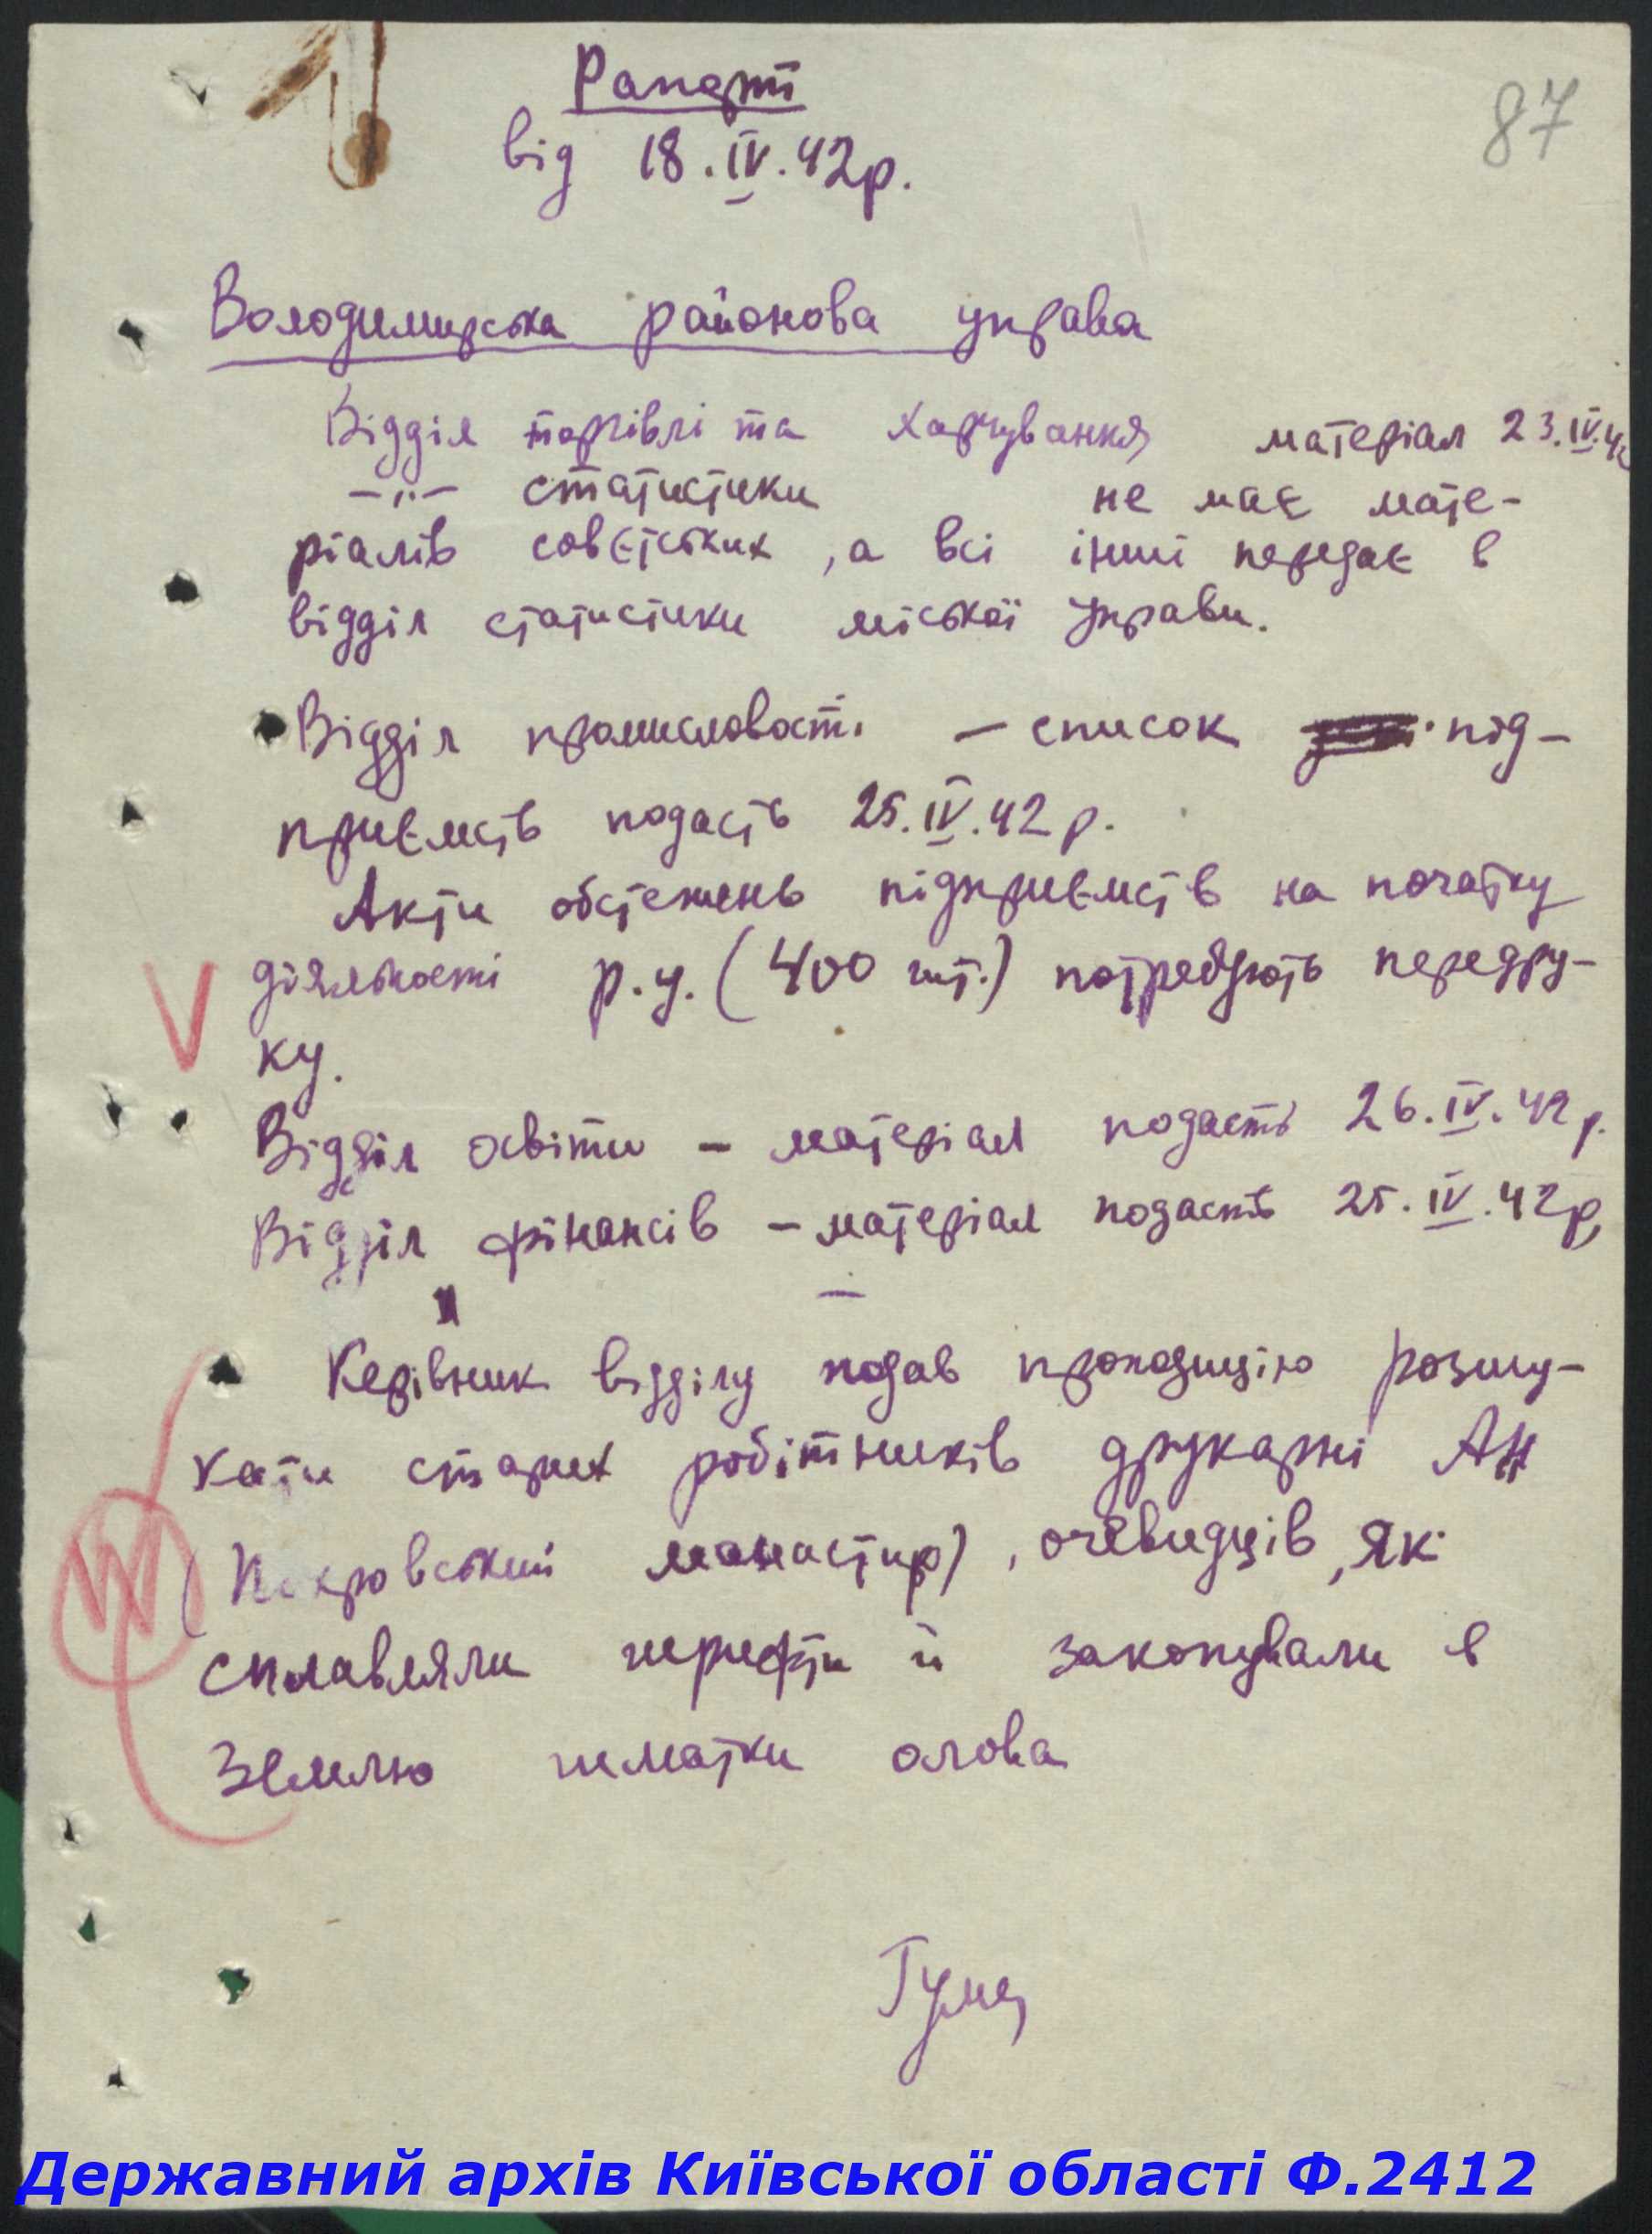 Рапорт
87
від 18.IV.42р.
Володимирська районова управа
Відділ торгівлі та харчування матеріал 23.IV.42
–„– статистики не має мате-
ріалів совєтських, а всі інші передає в
відділ статистики міської управи.
Відділ промисловости – список під-
приємств подасть 25.IV.42 р.
Акти обстежень підприємств на початку
діяльності р.у. (400 шт.) потребують передру-
ку.
Відділ освіти – матеріал подасть 26.IV.42 р.
Відділ фінансів – матеріал подасть 25.IV.42р
Керівник відділу подав пропозицію розшу-
кати старих робітників друкарні АН
(Покровський манастир), очевидців, які
сплавляли шрифти й закопували в
землю шматки олова
Державний архів Київської області Ф.2412